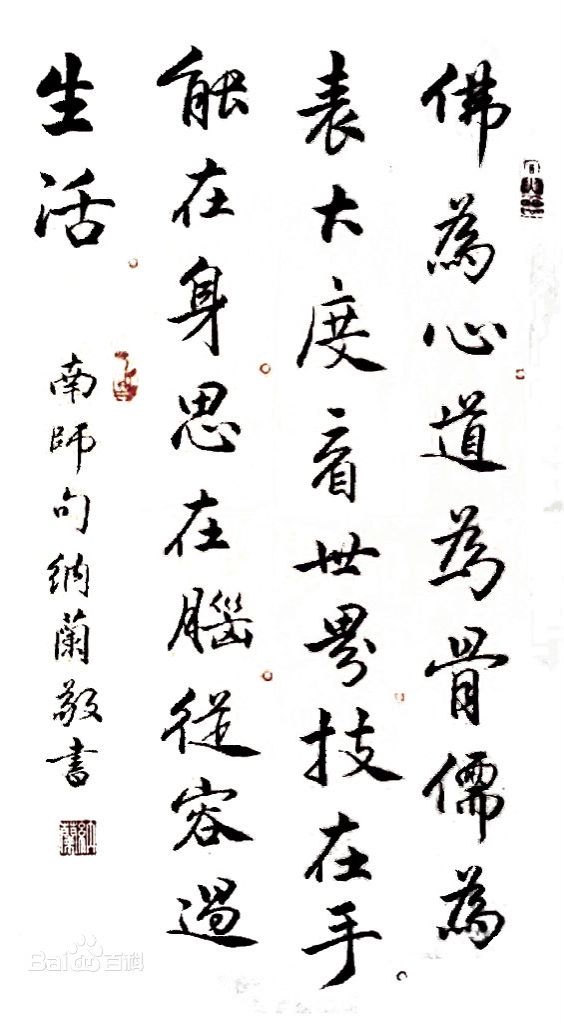 佛為心道為骨儒為
表大度看世界技在手
能在身思在腦從容過
生活
南師句納蘭敬書
納蘭
Bai百科